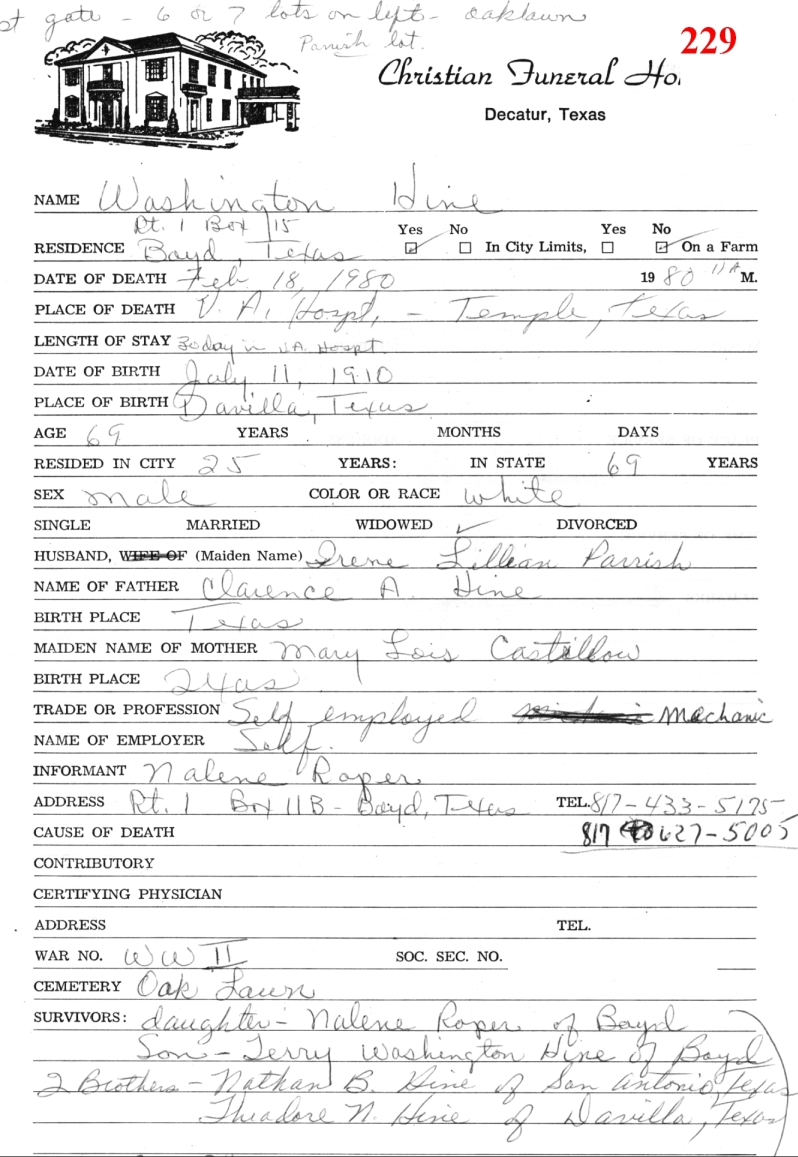 st gate - 6 or 7 lots on left - Oaklawn
Parrish lot.
229
Christian Funeral Ho
Decatur, Texas
NAME Washington Hine
Rt. 1 Box 115
Yes No Yes No
RESIDENCE Boyd, Texas In City Limits, On a Farm
DATE OF DEATH Feb 18, 1980 1980 11 A M.
PLACE OF DEATH V. A. Hospt, - Temple, Texas
LENGTH OF STAY 30 day in V.A. Hospt.
DATE OF BIRTH July 11, 1910
PLACE OF BIRTH Davilla, Texas
AGE 69 YEARS MONTHS DAYS
RESIDED IN CITY 25 YEARS: IN STATE 69 YEARS
SEX male COLOR OR RACE white
SINGLE MARRIED WIDOWED ✓ DIVORCED
HUSBAND, WIFE OF (Maiden Name) Irene Lillian Parrish
NAME OF FATHER Clarence A. Hine
BIRTH PLACE Texas
MAIDEN NAME OF MOTHER Mary Lois Castillow
BIRTH PLACE Texas
TRADE OR PROFESSION Self employed Mechanic
NAME OF EMPLOYER Self.
INFORMANT Nalene Roper
ADDRESS Rt. 1 Box 11B - Boyd, Texas TEL. 817-433-5175
CAUSE OF DEATH 817 627-5005
CONTRIBUTORY
CERTIFYING PHYSICIAN
ADDRESS TEL.
WAR NO. WW II SOC. SEC. NO.
CEMETERY Oak Lawn
SURVIVORS: daughter - Nalene Roper of Boyd
Son - Terry Washington Hine of Boyd
2 Brothers - Nathan B. Hine of San Antonio, Texas
Theadore N. Hine of Davilla, Texas